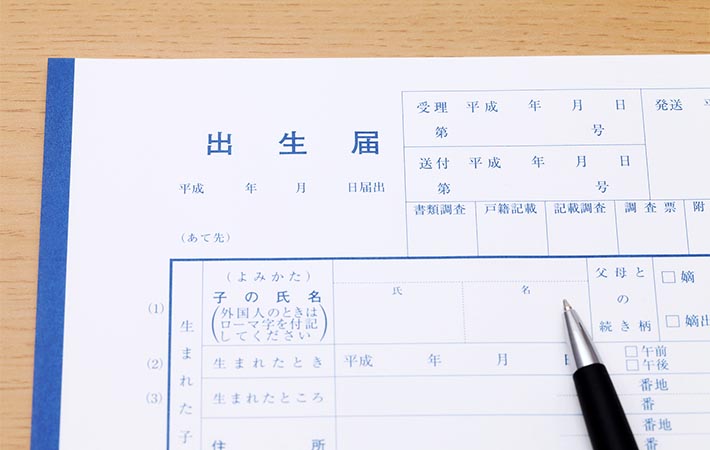 受理 平成 年 月 日
第 号
発送
出生届
送付 平成 年 月 日
第 号
平成 年 月 日届出
書類調査 戸籍記載 記載調査 調査票 附
(あて先)
(1) 生まれた子
(よみかた)
子の氏名
(外国人のときは
ローマ字を付記
してください)
氏 名
父母と
の
続き柄
□嫡
□嫡出
(2) 生まれたとき 平成 年 月 日
□午前
□午後
(3) 生まれたところ
番地
番
住所
番地
番